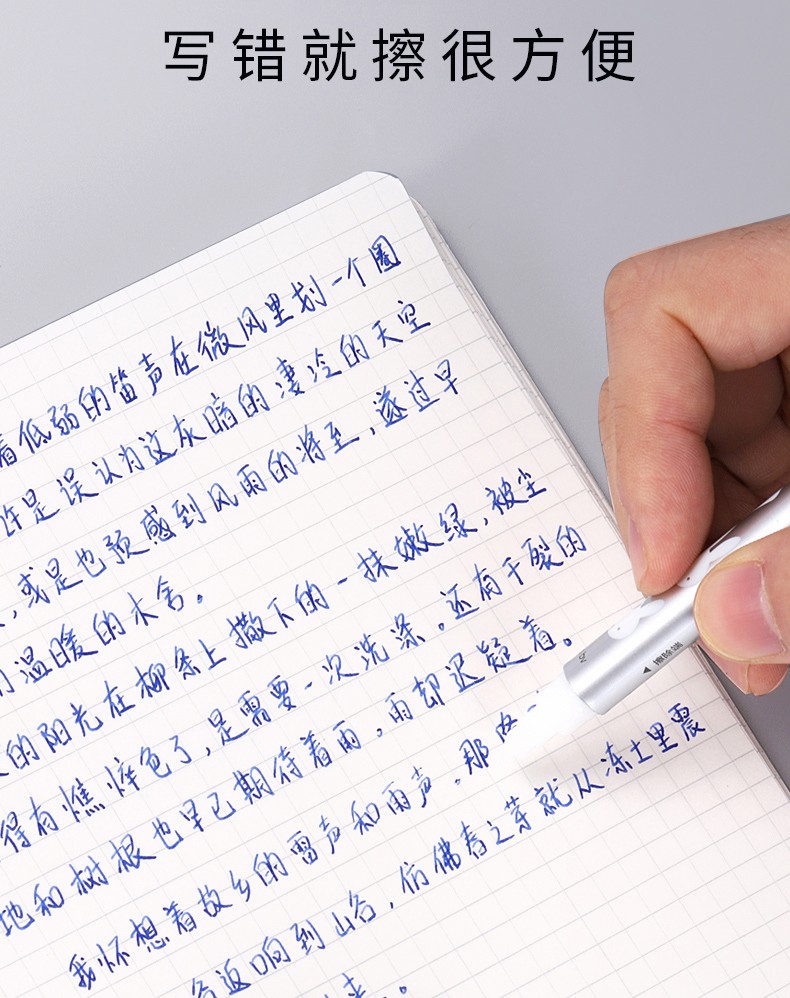 写错就擦很方便
着低弱的笛声在微风里划一个圈
许是误认为这灰暗的凄冷的天空
,或是也预感到风雨的将至,遂过早
温暖的木舍。
的阳光在柳条上撒下的一抹嫩绿,被尘
得有憔悴色了,是需要一次洗涤。还有干裂的
地和树根也早已期待着雨,雨却迟疑着。
我怀想着故乡的雷声和雨声。那
返响到山谷,仿佛春之芽就从冻土里震
擦除端